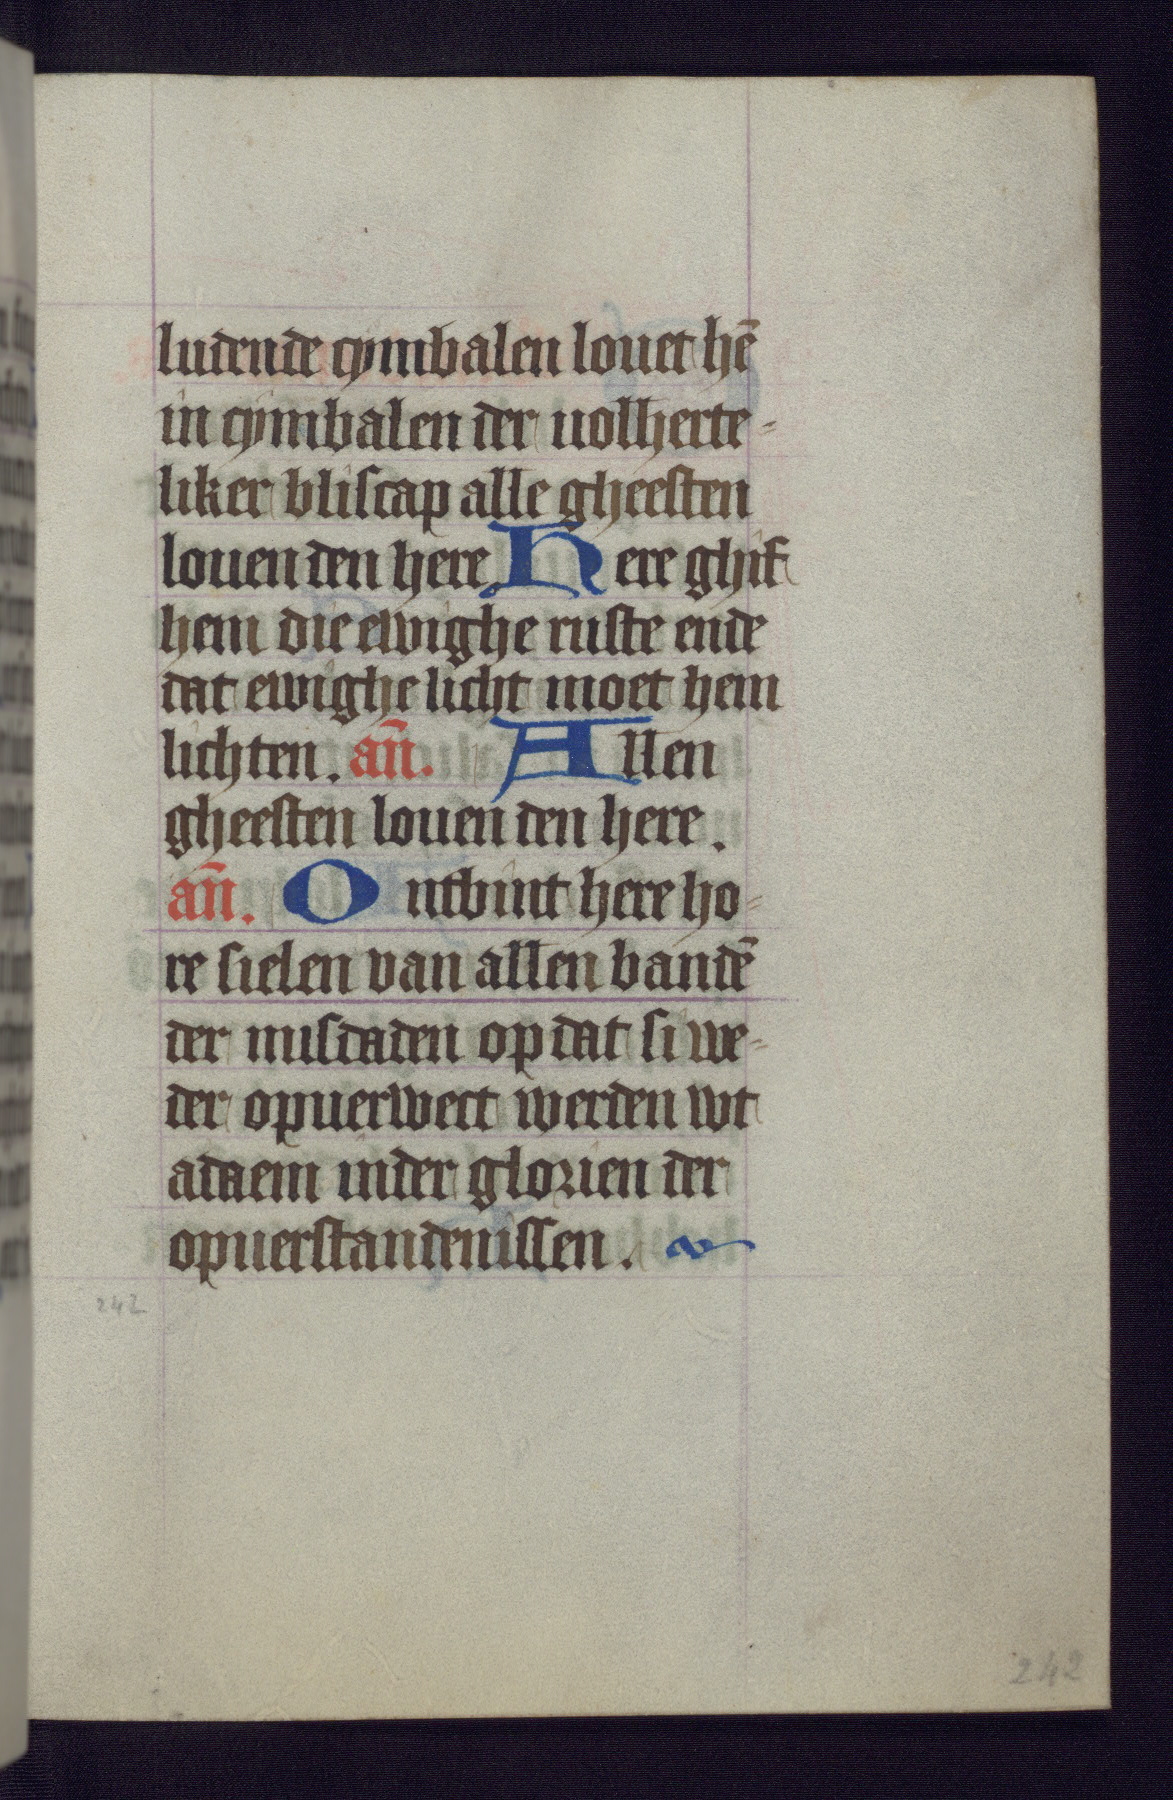 ludende cymbalen louet hē
in cymbalen der uolherte-
liker bliscap alle gheesten
louen den here. Here ghif
hem die ewighe ruste ende
dat ewighe licht moet hem
lichten. an̄. Allen
gheesten louen den here.
an̄. Ontbint here ho-
re sielen van allen bandē
der misdaden op dat si we-
der opuerwect werden wt
adaem inder glorien der
opuerstandenissen.
242
242